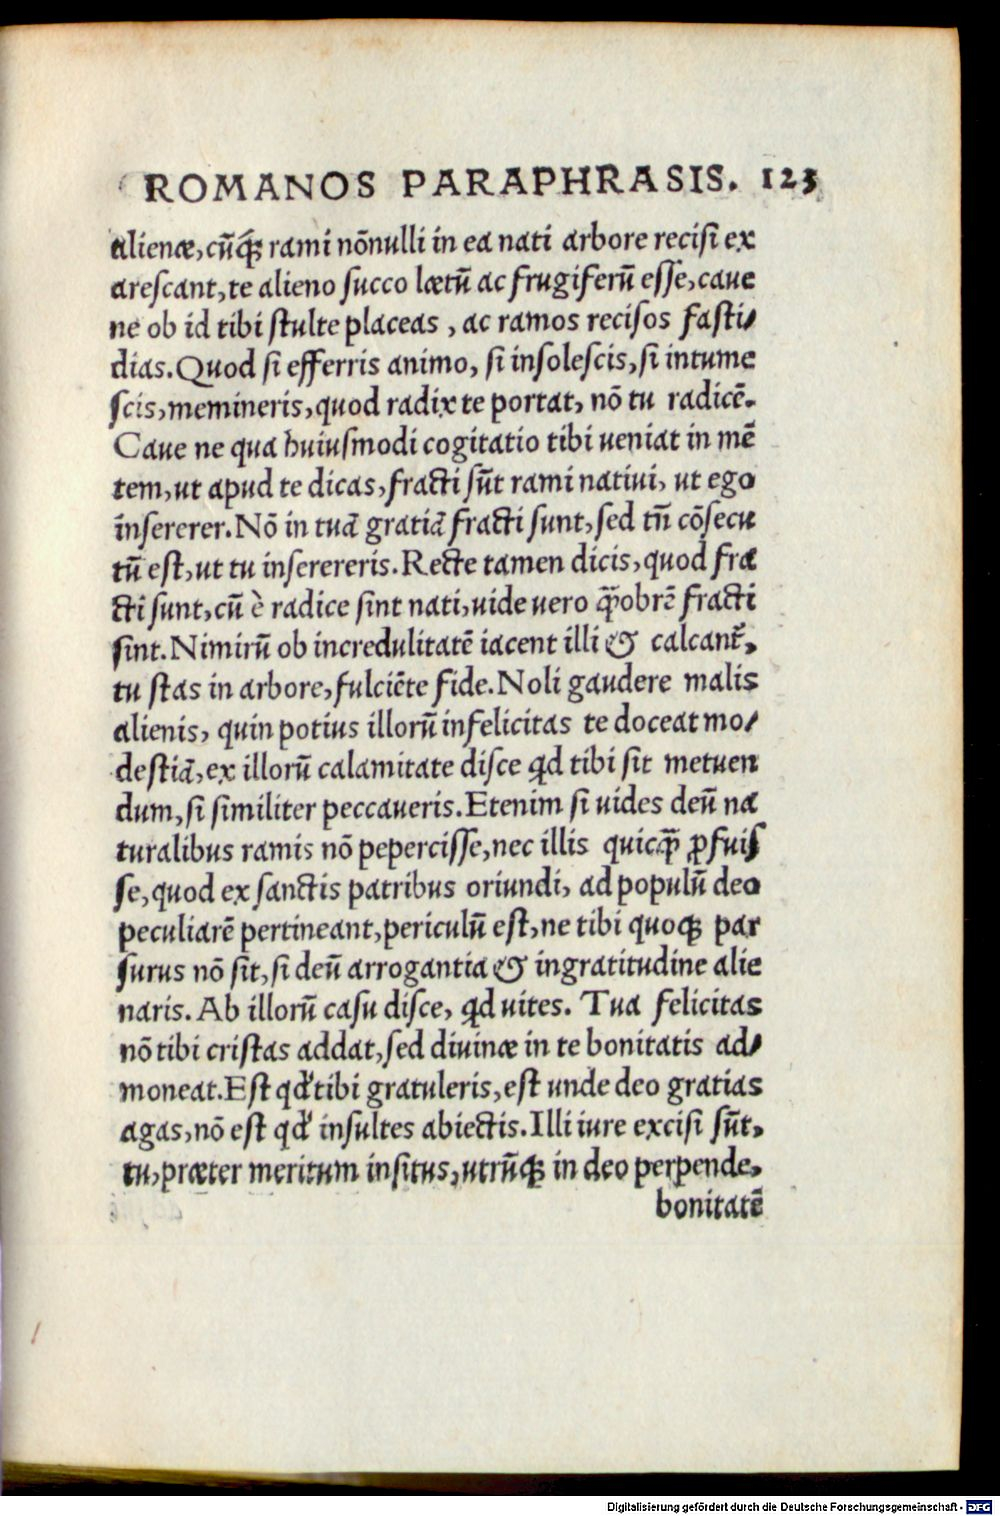 ROMANOS PARAPHRASIS. 123
alienæ, cũq́ꝫ rami nõnulli in ea nati arbore recisi ex
arescant, te alieno succo lætũ ac frugiferũ esse, caue
ne ob id tibi stulte placeas, ac ramos recisos fasti/
dias. Quod si efferris animo, si insolescis, si intume
scis, memineris, quod radix te portat, nõ tu radicẽ.
Caue ne qua huiusmodi cogitatio tibi ueniat in mẽ
tem, ut apud te dicas, fracti sũt rami natiui, ut ego
insererer. Nõ in tuã gratiã fracti sunt, sed tñ cõsecu
tũ est, ut tu insererereris. Recte tamen dicis, quod fra
cti sunt, cũ è radice sint nati, uide uero q̃obrẽ fracti
sint. Nimirũ ob incredulitatẽ iacent illi & calcant᷑,
tu stas in arbore, fulciẽte fide. Noli gaudere malis
alienis, quin potius illorũ infelicitas te doceat mo/
destiã, ex illorũ calamitate disce qd tibi sit metuen
dum, si similiter peccaueris. Etenim si uides deũ na
turalibus ramis nõ pepercisse, nec illis quicq̃ ꝓfuis
se, quod ex sanctis patribus oriundi, ad populũ deo
peculiarẽ pertineant, periculũ est, ne tibi quoqꝫ par
surus nõ sit, si deũ arrogantia & ingratitudine alie
naris. Ab illorũ casu disce, qd uites. Tua felicitas
nõ tibi cristas addat, sed diuinæ in te bonitatis ad/
moneat. Est qd' tibi gratuleris, est unde deo gratias
agas, nõ est qd' insultes abiectis. Illi iure excisi sũt,
tu, præter meritum insitus, utrũqꝫ in deo perpende,
bonitatẽ
Digitalisierung gefördert durch die Deutsche Forschungsgemeinschaft - DFG